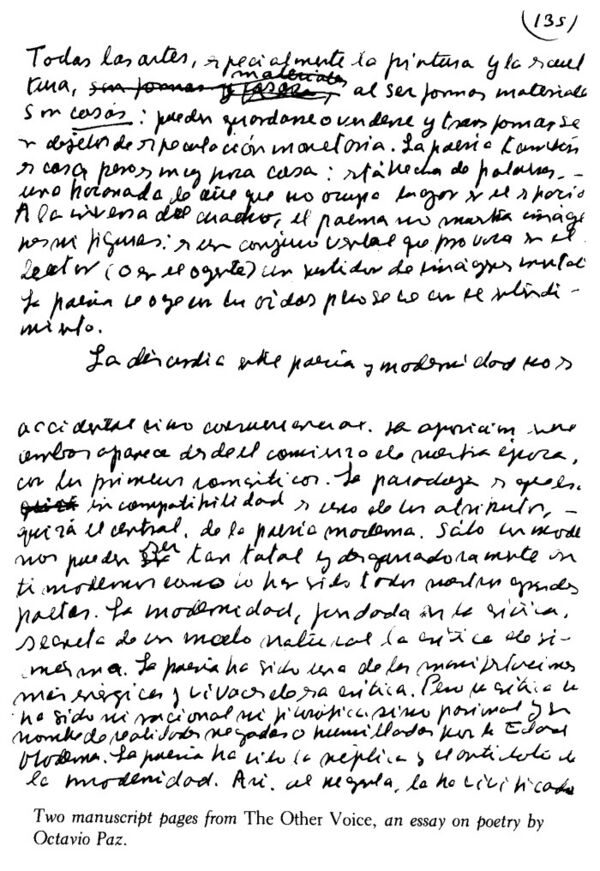 (135)
Todas las artes, especialmente la pintura y la escul
tura, materiales al ser formas materiales
son cosas: pueden guardarse o venderse y transformarse
en objetos de especulación monetaria. La poesía también
es cosa pero es muy poca cosa: está hecha de palabras, -
una bocanada de aire que no ocupa lugar en el espacio
A la inversa del cuadro, el poema no muestra imáge
nes ni figuras: es un conjuro verbal que provoca en el
lector (o en el oyente) un surtidor de imágenes mentales
La poesía se oye con los oídos pero se ve con el entendi-
miento.
La discordia entre poesía y modernidad no es
accidental sino consustancial. La oposición entre
ambas aparece desde el comienzo de nuestra época,
con los primeros románticos. La paradoja es que es.
incompatibilidad es uno de los atributos, -
quizá el central, de la poesía moderna. Sólo los mode
nos pueden ser tan total y desgarradoramente an
timodernos como lo han sido todos nuestros grandes
poetas. La modernidad, fundada en la crítica,
secreta de un modo natural la crítica de sí-
misma. La poesía ha sido una de las manifestaciones
más enérgicas y vivaces de esa crítica. Pero su crítica no
ha sido ni racional ni filosófica sino pasional y en
nombre de realidades negadas o humilladas por la Edad
Moderna. La poesía ha sido la réplica y el antídoto de
la modernidad. Así, al negarla, la ha vivificado
Two manuscript pages from The Other Voice, an essay on poetry by
Octavio Paz.